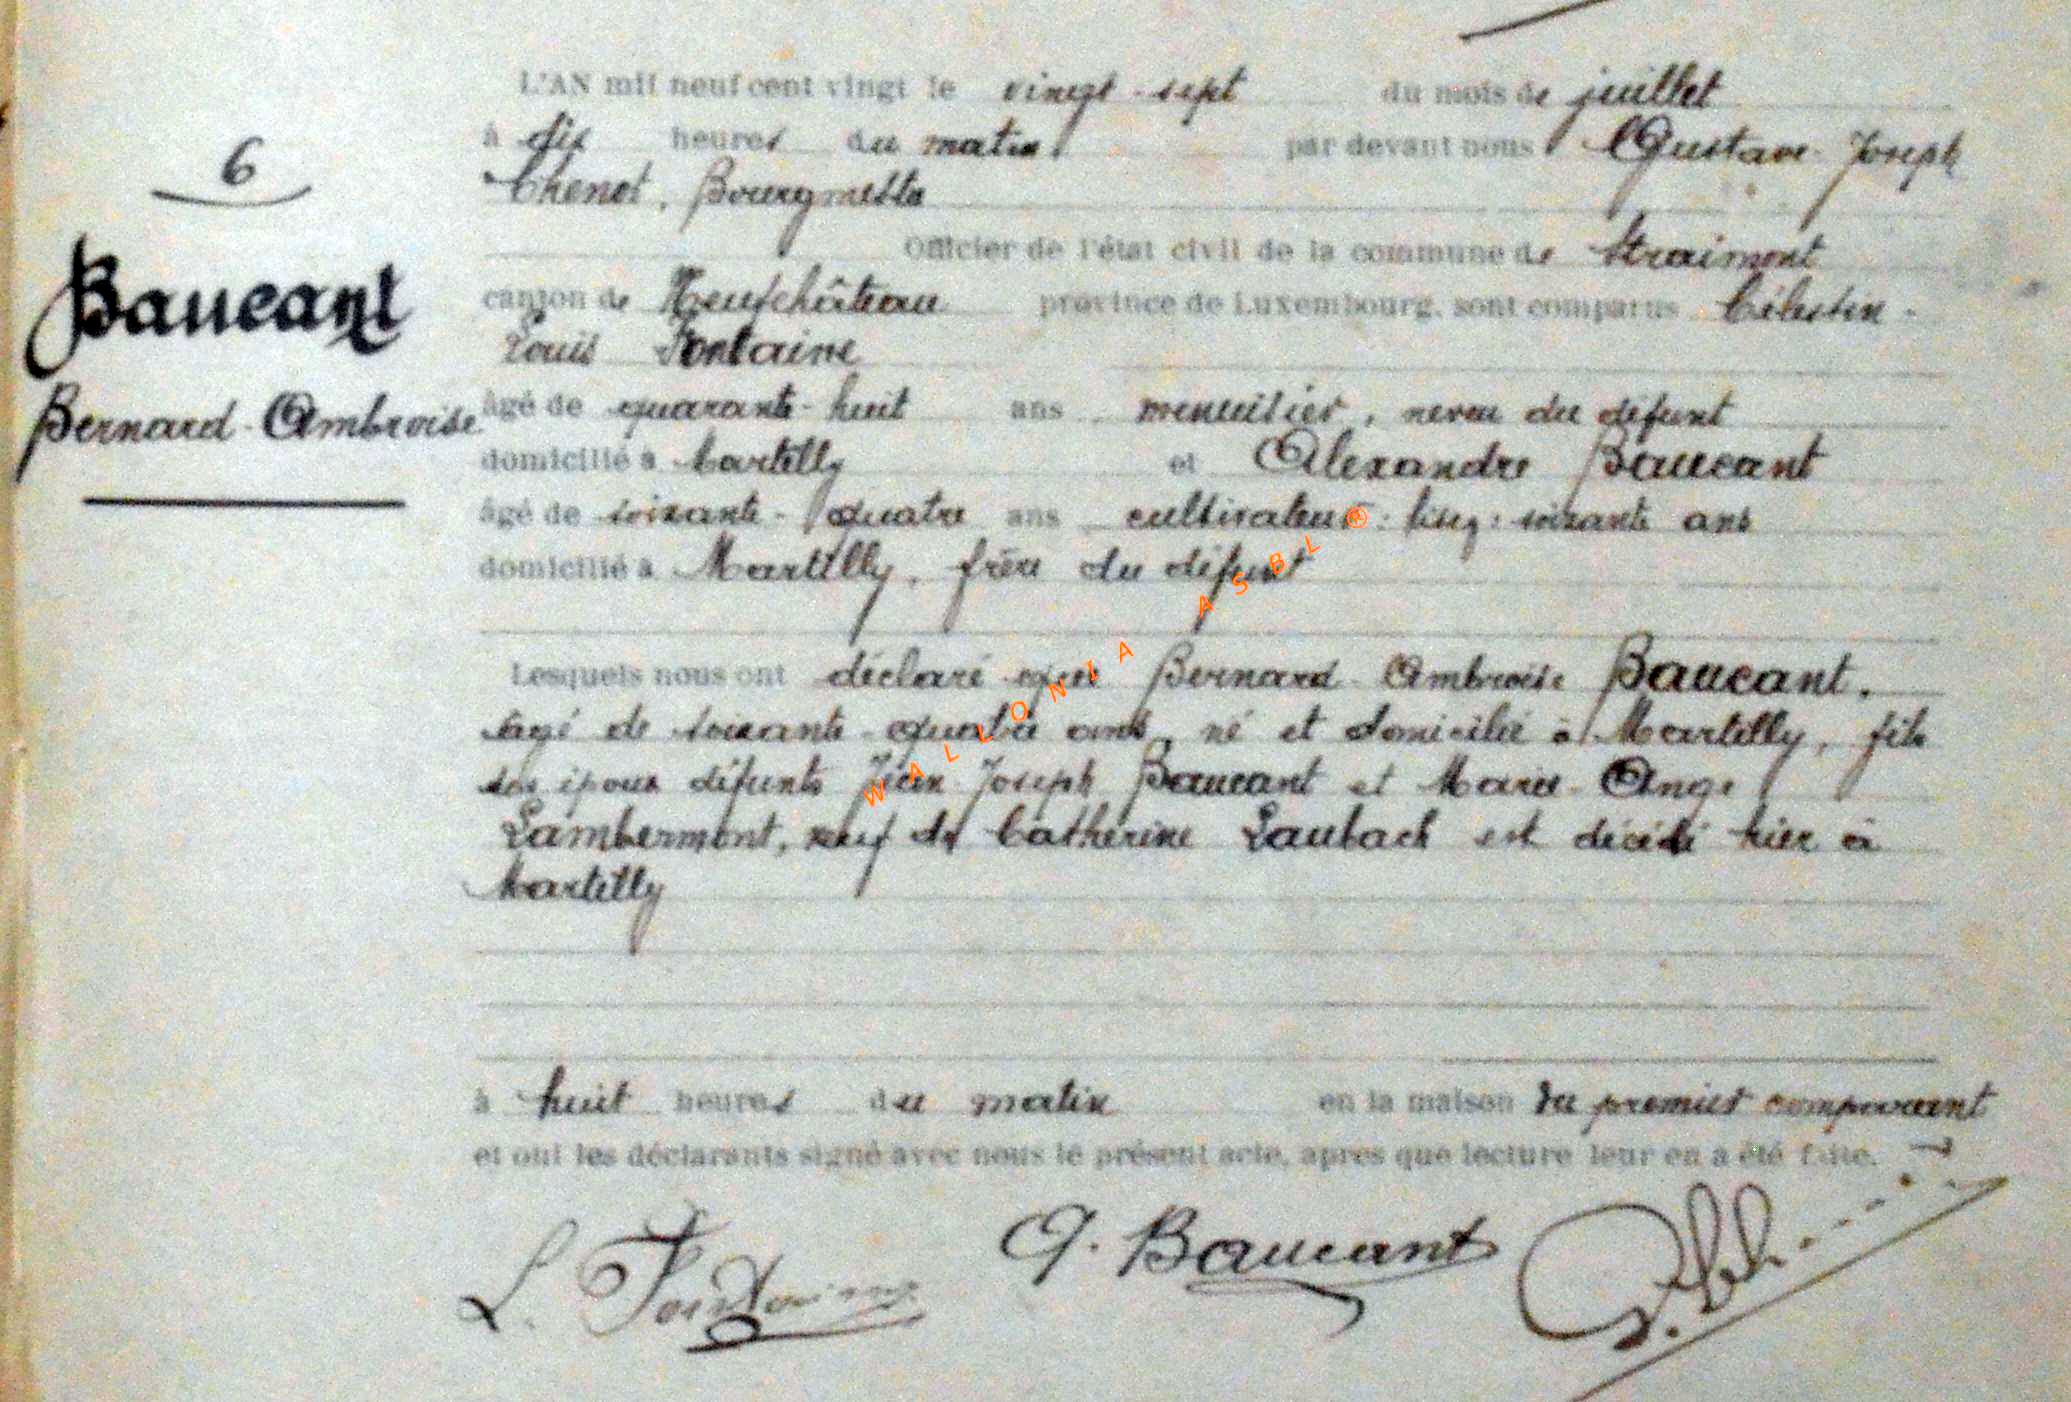 6
Baucant
Bernard-Ambroise
L'AN mil neuf cent vingt le vingt-sept du mois de juillet
à dix heures du matin, par devant nous Gustave-Joseph
Chenot, Bourgmestre
Officier de l'état civil de la commune de Straimont
canton de Neufchâteau province de Luxembourg, sont comparus Célestin-
Louis Fontaine
âgé de quarante-huit ans menuisier, neveu du défunt
domicilié à Martilly et Alexandre Baucant
âgé de soixante-quatre ans cultivateur : lisez : soixante ans
domicilié à Martilly, frère du défunt
Lesquels nous ont déclaré que Bernard-Ambroise Baucant,
âgé de soixante-quatre ans, né et domicilié à Martilly, fils
des époux défunts Jean-Joseph Baucant et Marie-Ange
Lambermont, veuf de Catherine Laubach est décédé hier à
Martilly
à huit heures du matin en la maison du premier comparant
et ont les déclarants signé avec nous le présent acte, après que lecture leur en a été faite.
L. Fontaine A. Baucant
WALLONIA ASBL®